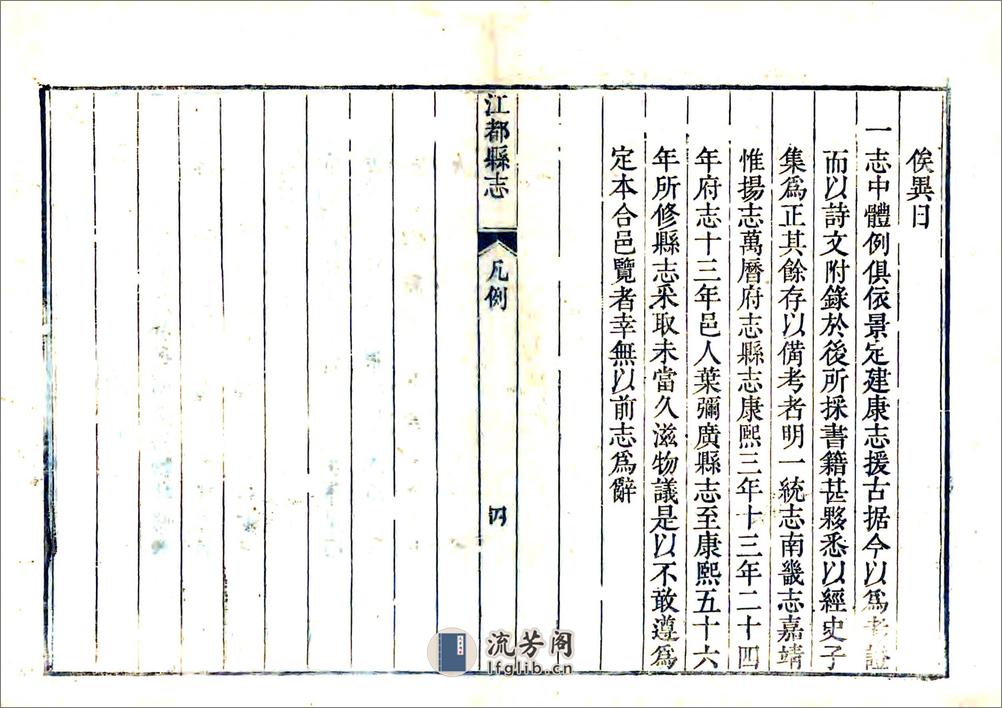 俟異日
一志中體例俱依景定建康志援古据今以爲考證
而以詩文附錄於後所採書籍甚夥悉以經史子
集爲正其餘存以備考者明一統志南畿志嘉靖
惟揚志萬曆府志縣志康熙三年十三年二十四
年府志十三年邑人葉彌廣縣志至康熙五十六
年所修縣志采取未當久滋物議是以不敢遵爲
定本合邑覽者幸無以前志爲辭
江都縣志
凡例
四
流芳阁
lfglib.cn